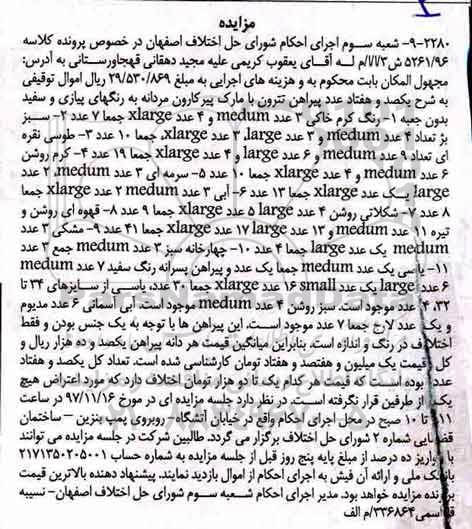 مزایده
۹-۲۲۸۰- شعبه سوم اجرای احکام شورای حل اختلاف اصفهان در خصوص پرونده کلاسه
۵۲۶۱/۹۶ ش۳/ا/م لـه آقـای یعقوب کریمی علیه مجید دهقانی قهجاورستـانی به آدرس:
مجهول المکان بابت محکوم به و هزینه های اجرایی به مبلغ ۲۹/۵۳۰/۸۶۹ ریال اموال توقیفی
به شرح یکصد و هفتاد عدد پیراهن تترون با مارک پیرکارون مردانه به رنگهای پیازی و سفید
بدون جعبه ۱- رنگ کرم خاکی ۳ عدد medum و ۴ عدد xlarge جمعا ۷ عدد ۲- سبز
بژ تعداد ۴ عدد medum و ۳ عدد large، ۳ عدد xlarge، جمعا ۱۰ عدد ۳- طوسی نقره
ای تعداد ۹ عدد medum و ۶ عدد large و ۴ عدد xlarge جمعا ۱۹ عدد ۴- کرم روشن
۶ عدد medum و ۴ عدد xlarge جمعا ۱۰ عدد ۵- سرمه ای ۳ عدد medum، ۲ عدد
large یک عدد xlarge جمعا ۱۳ عدد ۶- آبی ۳ عدد medum ۲ عدد xlarge جمعا
عدد ۷- شکلاتی روشن ۴ عدد large ۵ عدد xlarge جمعا ۹ عدد ۸- قهوه ای روشن و
تیره ۱۱ عدد medum و ۱۳ عدد large ۱۷ عدد xlarge جمعا ۴۱ عدد ۹- مشکی ۳ عدد
medum یک عدد large جمعا ۴ عدد ۱۰- چهارخانه سبز ۳ عدد medum جمع ۳ عدد
۱۱- یاسی یک عدد medum جمعا یک عدد و پیراهن پسرانه رنگ سفید ۷ عدد medum
۶ عدد large یک عدد small ۱۶ عدد xlarge جمعا ۳۰ عدد، یاسی از سایزهای ۳۴ تا
۳۲، ۴ عدد موجود است. سبز روشن ۴ عدد medum موجود است. آبی آسمانی ۶ عدد مدیوم
و یک عدد لارج جمعا ۷ عدد موجود است. این پیراهن ها با توجه به یک جنس بودن و فقط
اختلاف در رنگ و اندازه است. بنابراین میانگین قیمت هر دانه پیراهن یکصد و ده هزار ریال و
کل قیمت یک میلیون و هفتصد و هفتاد تومان کارشناسی شده است. تعداد کل یکصد و هفتاد
عدد بوده است که قیمت هر کدام یک تا دو هزار تومان اختلاف دارد که مورد اعتراض هیچ
یک از طرفین قرار نگرفته است. در نظر دارد جلسه مزایده ای در مورخ ۹۷/۱۱/۱۶ در ساعت
تا ۱۰ صبح در محل اجرای احکام واقع در خیابان آتشگاه - روبروی پمپ بنزین - ساختمان
قضایی شماره ۲ شورای حل اختلاف برگزار می گردد. طالبین شرکت در جلسه مزایده می توانند
با واریز ده درصد از مبلغ پایه پنج روز قبل از جلسه مزایده به شماره حساب ۲۱۷۱۳۵۰۲۰۵۰۰۱
بانک ملی و ارائه آن فیش به اجرای احکام از اموال بازدید نمایند. پیشنهاد دهنده بالاترین قیمت
برنده مزایده خواهد بود. مدیر اجرای احکام شعبه سوم شورای حل اختلاف اصفهان- نسیبه
قاسمی ۳۳۶۸۶۴/م الف